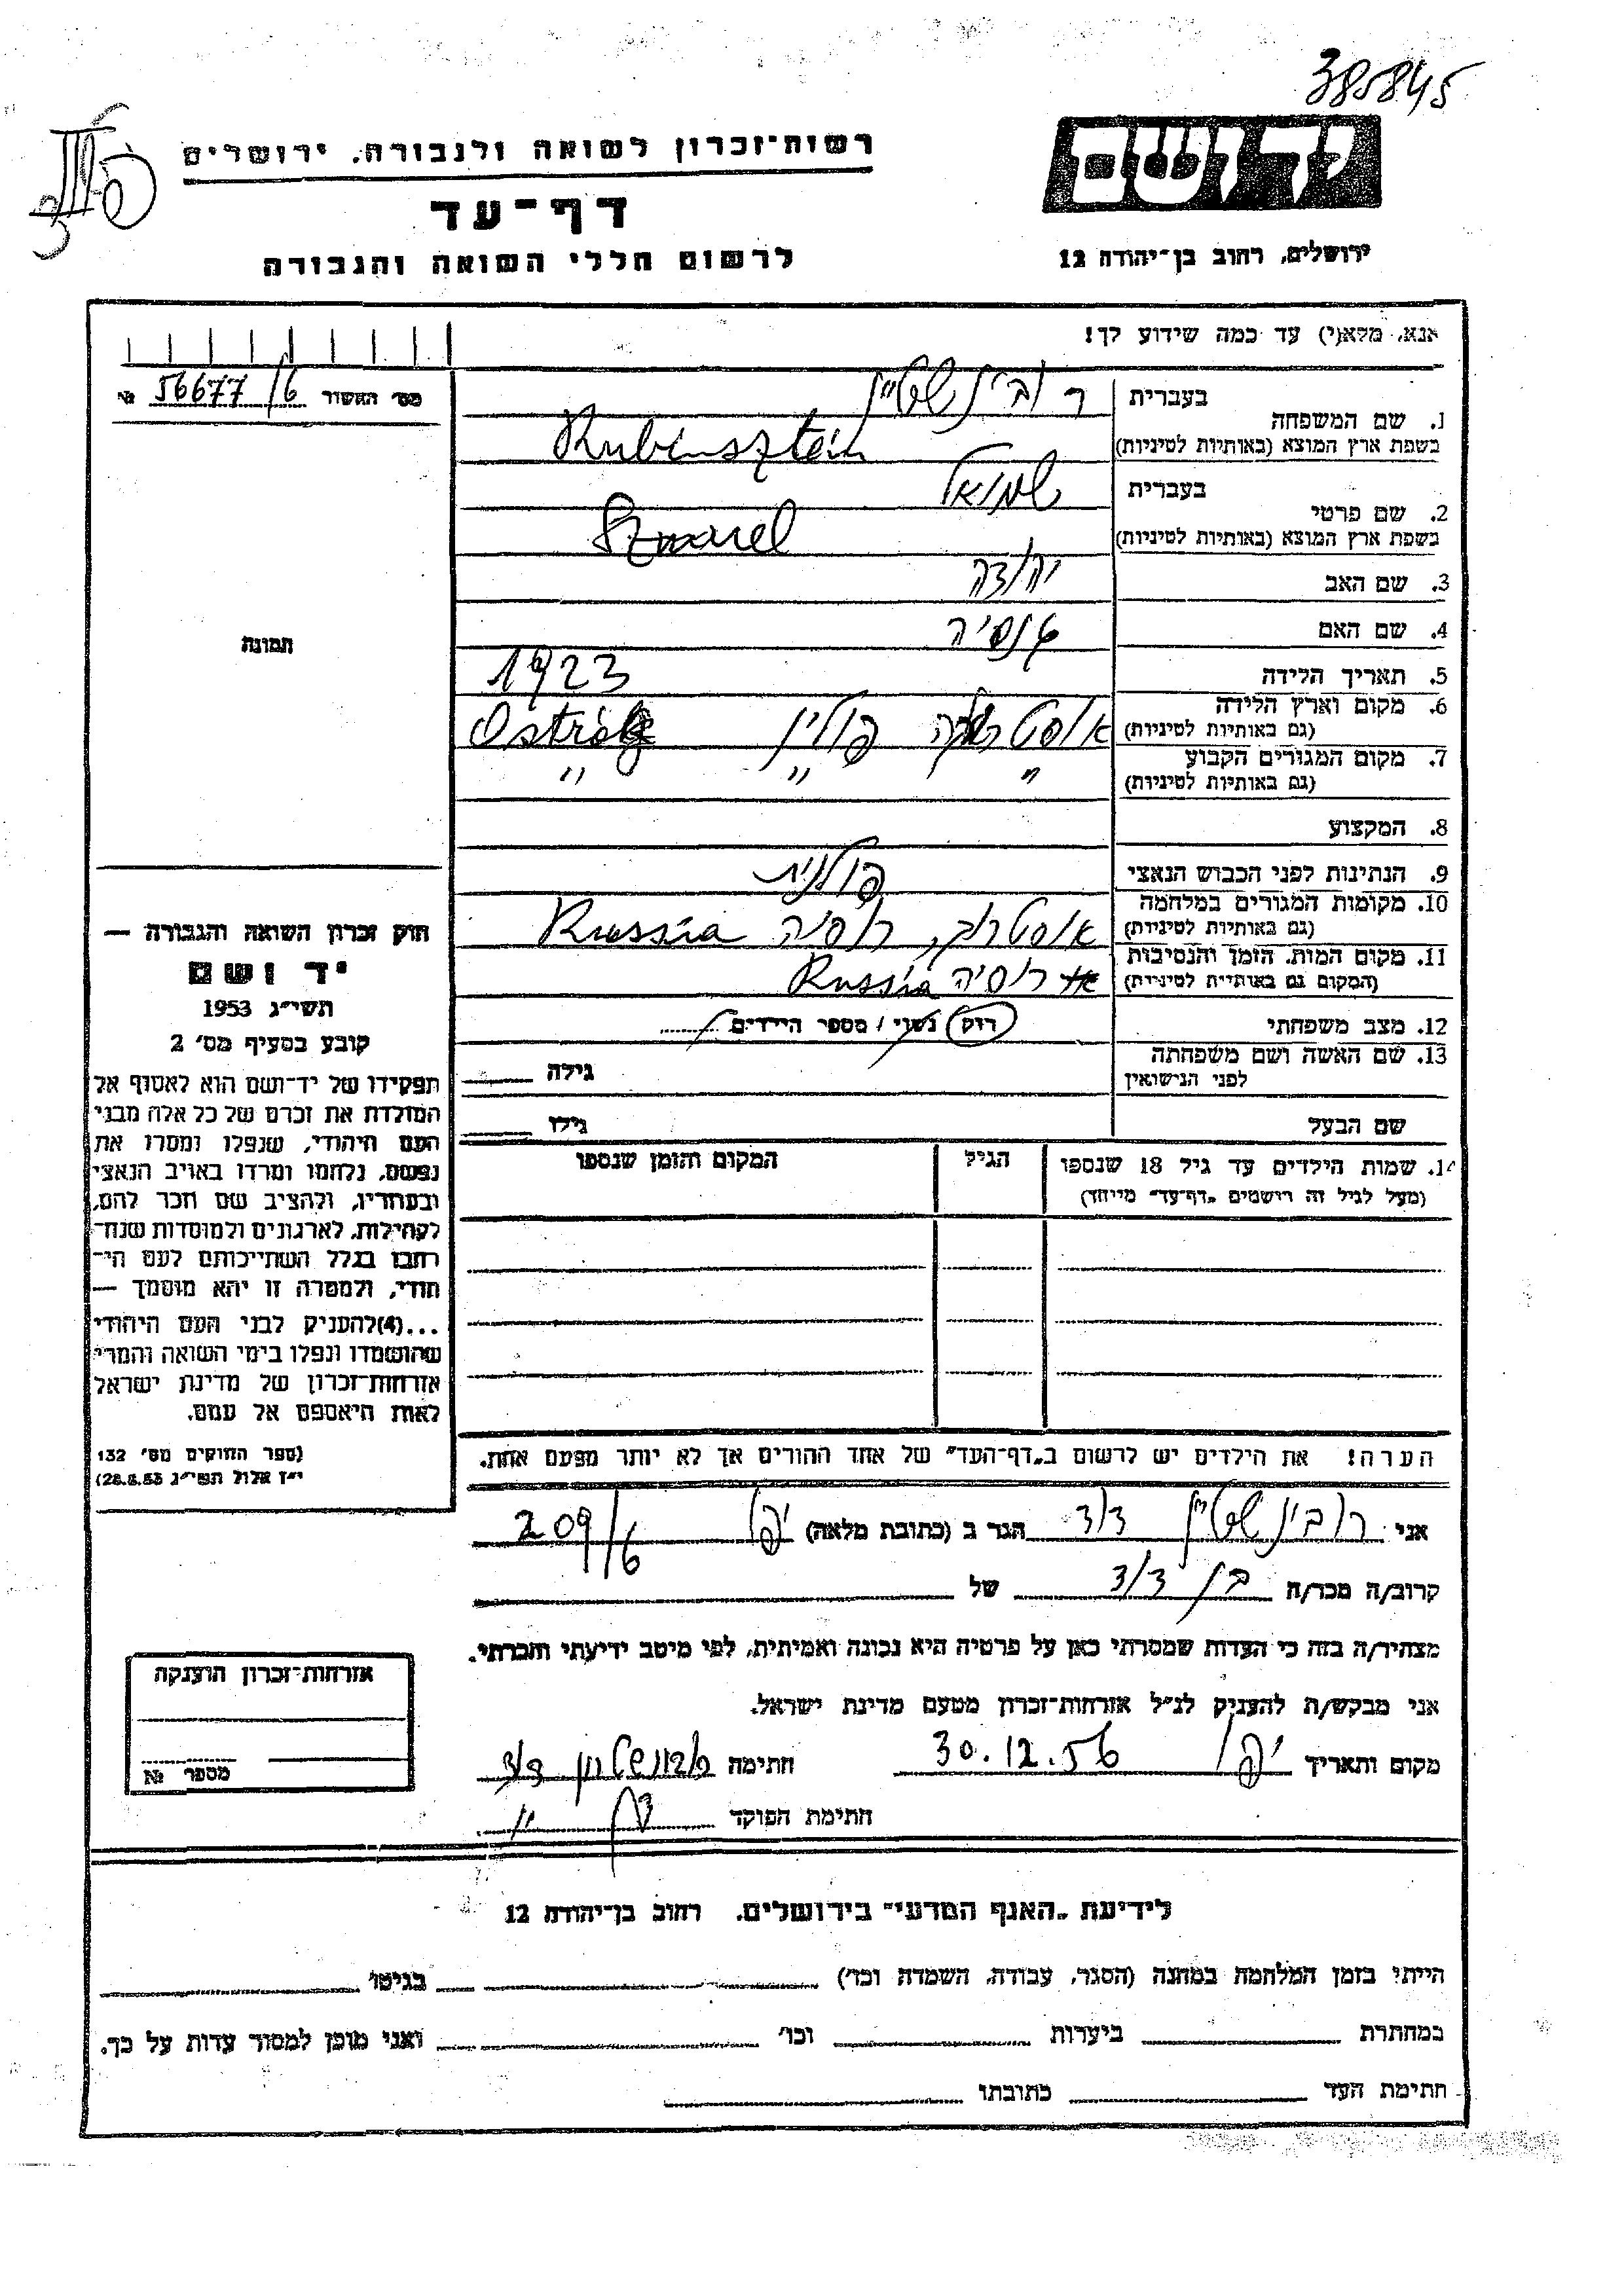 385845
יד ושם
רשות-זכרון לשואה ולגבורה, ירושלים
דף-עד
לרשום חללי השואה והגבורה
ירושלים, רחוב בן-יהודה 12
אנא, מלא(י) עד כמה שידוע לך!
מס' האשור № 56677/6
1. שם המשפחה
בעברית רובינשטיין
בשפת ארץ המוצא (באותיות לטיניות) Rubinsztein
2. שם פרטי
בעברית שמואל
בשפת ארץ המוצא (באותיות לטיניות) Szmuel
3. שם האב יהודה
4. שם האם
5. תאריך הלידה 1923
6. מקום וארץ הלידה
(גם באותיות לטיניות) פולין
7. מקום המגורים הקבוע
(גם באותיות לטיניות) " " "
8. המקצוע
9. הנתינות לפני הכבוש הנאצי פולנית
10. מקומות המגורים במלחמה
(גם באותיות לטיניות) רוסיה Russia
11. מקום המות, הזמן והנסיבות
(המקום גם באותיות לטיניות) רוסיה Russia
12. מצב משפחתי רווק / נשוי / מספר הילדים
13. שם האשה ושם משפחתה
לפני הנישואין גילה
שם הבעל גילו
14. שמות הילדים עד גיל 18 שנספו הגיל המקום והזמן שנספו
(מעל לגיל זה רושמים "דף-עד" מיוחד)
הערה! את הילדים יש לרשום ב"דף-העד" של אחד ההורים אך לא יותר מפעם אחת.
תמונה
חוק זכרון השואה והגבורה —
יד ושם
תשי"ג 1953
קובע בסעיף מס' 2
תפקידו של יד-ושם הוא לאסוף אל
המולדת את זכרם של כל אלה מבני
העם היהודי, שנפלו ומסרו את
נפשם, נלחמו ומרדו באויב הנאצי
ובעוזריו, ולהציב שם וזכר להם,
לקהילות, לארגונים ולמוסדות שנח-
רבו בגלל השתייכותם לעם הי-
הודי, ולמטרה זו יהא מוסמך —
...(4)להעניק לבני העם היהודי
שהושמדו ונפלו בימי השואה והמרי
אזרחות-זכרון של מדינת ישראל
לאות היאספם אל עמם.
(ספר החוקים מס' 132
י"ז אלול תשי"ג 28.8.53)
אני רובינשטיין דוד הגר ב (כתובת מלאה) יפו 209/6
קרוב/ה מכר/ה בן דוד של
מצהיר/ה בזה כי העדות שמסרתי כאן על פרטיה היא נכונה ואמיתית, לפי מיטב ידיעתי והכרתי.
אני מבקש/ת להעניק לנ"ל אזרחות-זכרון מטעם מדינת ישראל.
מקום ותאריך יפו 30.12.56 חתימה
חתימת הפוקד
אזרחות-זכרון הוענקה
מספר №
לידיעת "האגף המדעי" בירושלים, רחוב בן-יהודה 12
הייתי בזמן המלחמה במחנה (הסגר, עבודה, השמדה וכו') בגיטו
במחתרת ביערות וכו' ואני מוכן למסור עדות על כך.
חתימת העד כתובתו